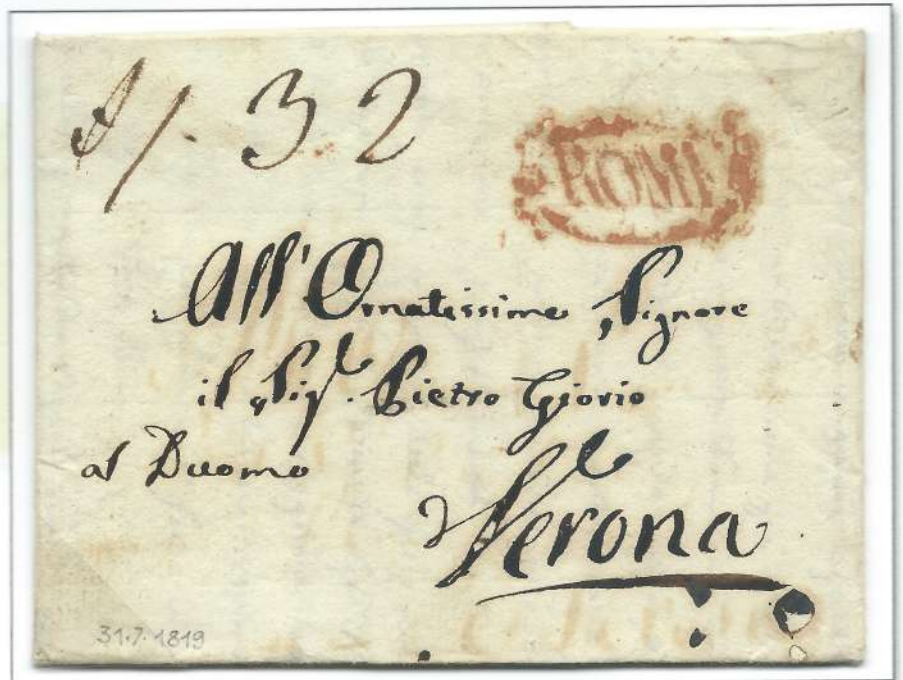 32
ROME
All' Ornatissimo Signore
il Sig.r Pietro Giorio
al Duomo
Verona
31.7.1819